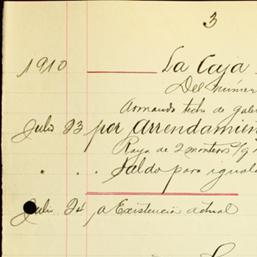 3
1910 La Caja
Del númer
Armando techo de gale
Julio 23 por Arrendamien
Raya de 2 monteros s/g
" " Saldo para iguala
Julio 24 a Existencia actual